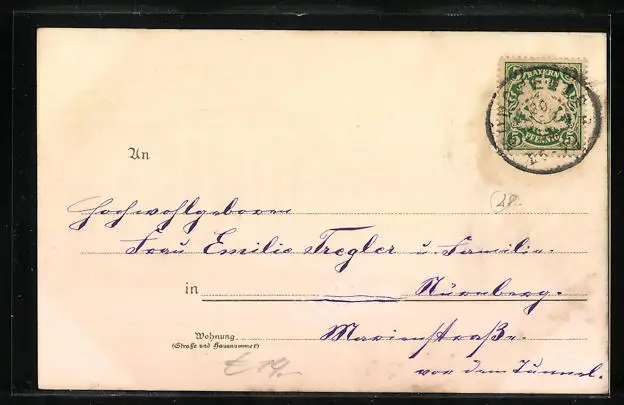 BAYERN
5 5
PFENNIG
28.
An
Hochwohlgeboren
Frau Emilie Tregler u. Familie.
in Nürnberg.
Wohnung
(Straße und Hausnummer)
Marienstraße.
vor dem Tunnel.